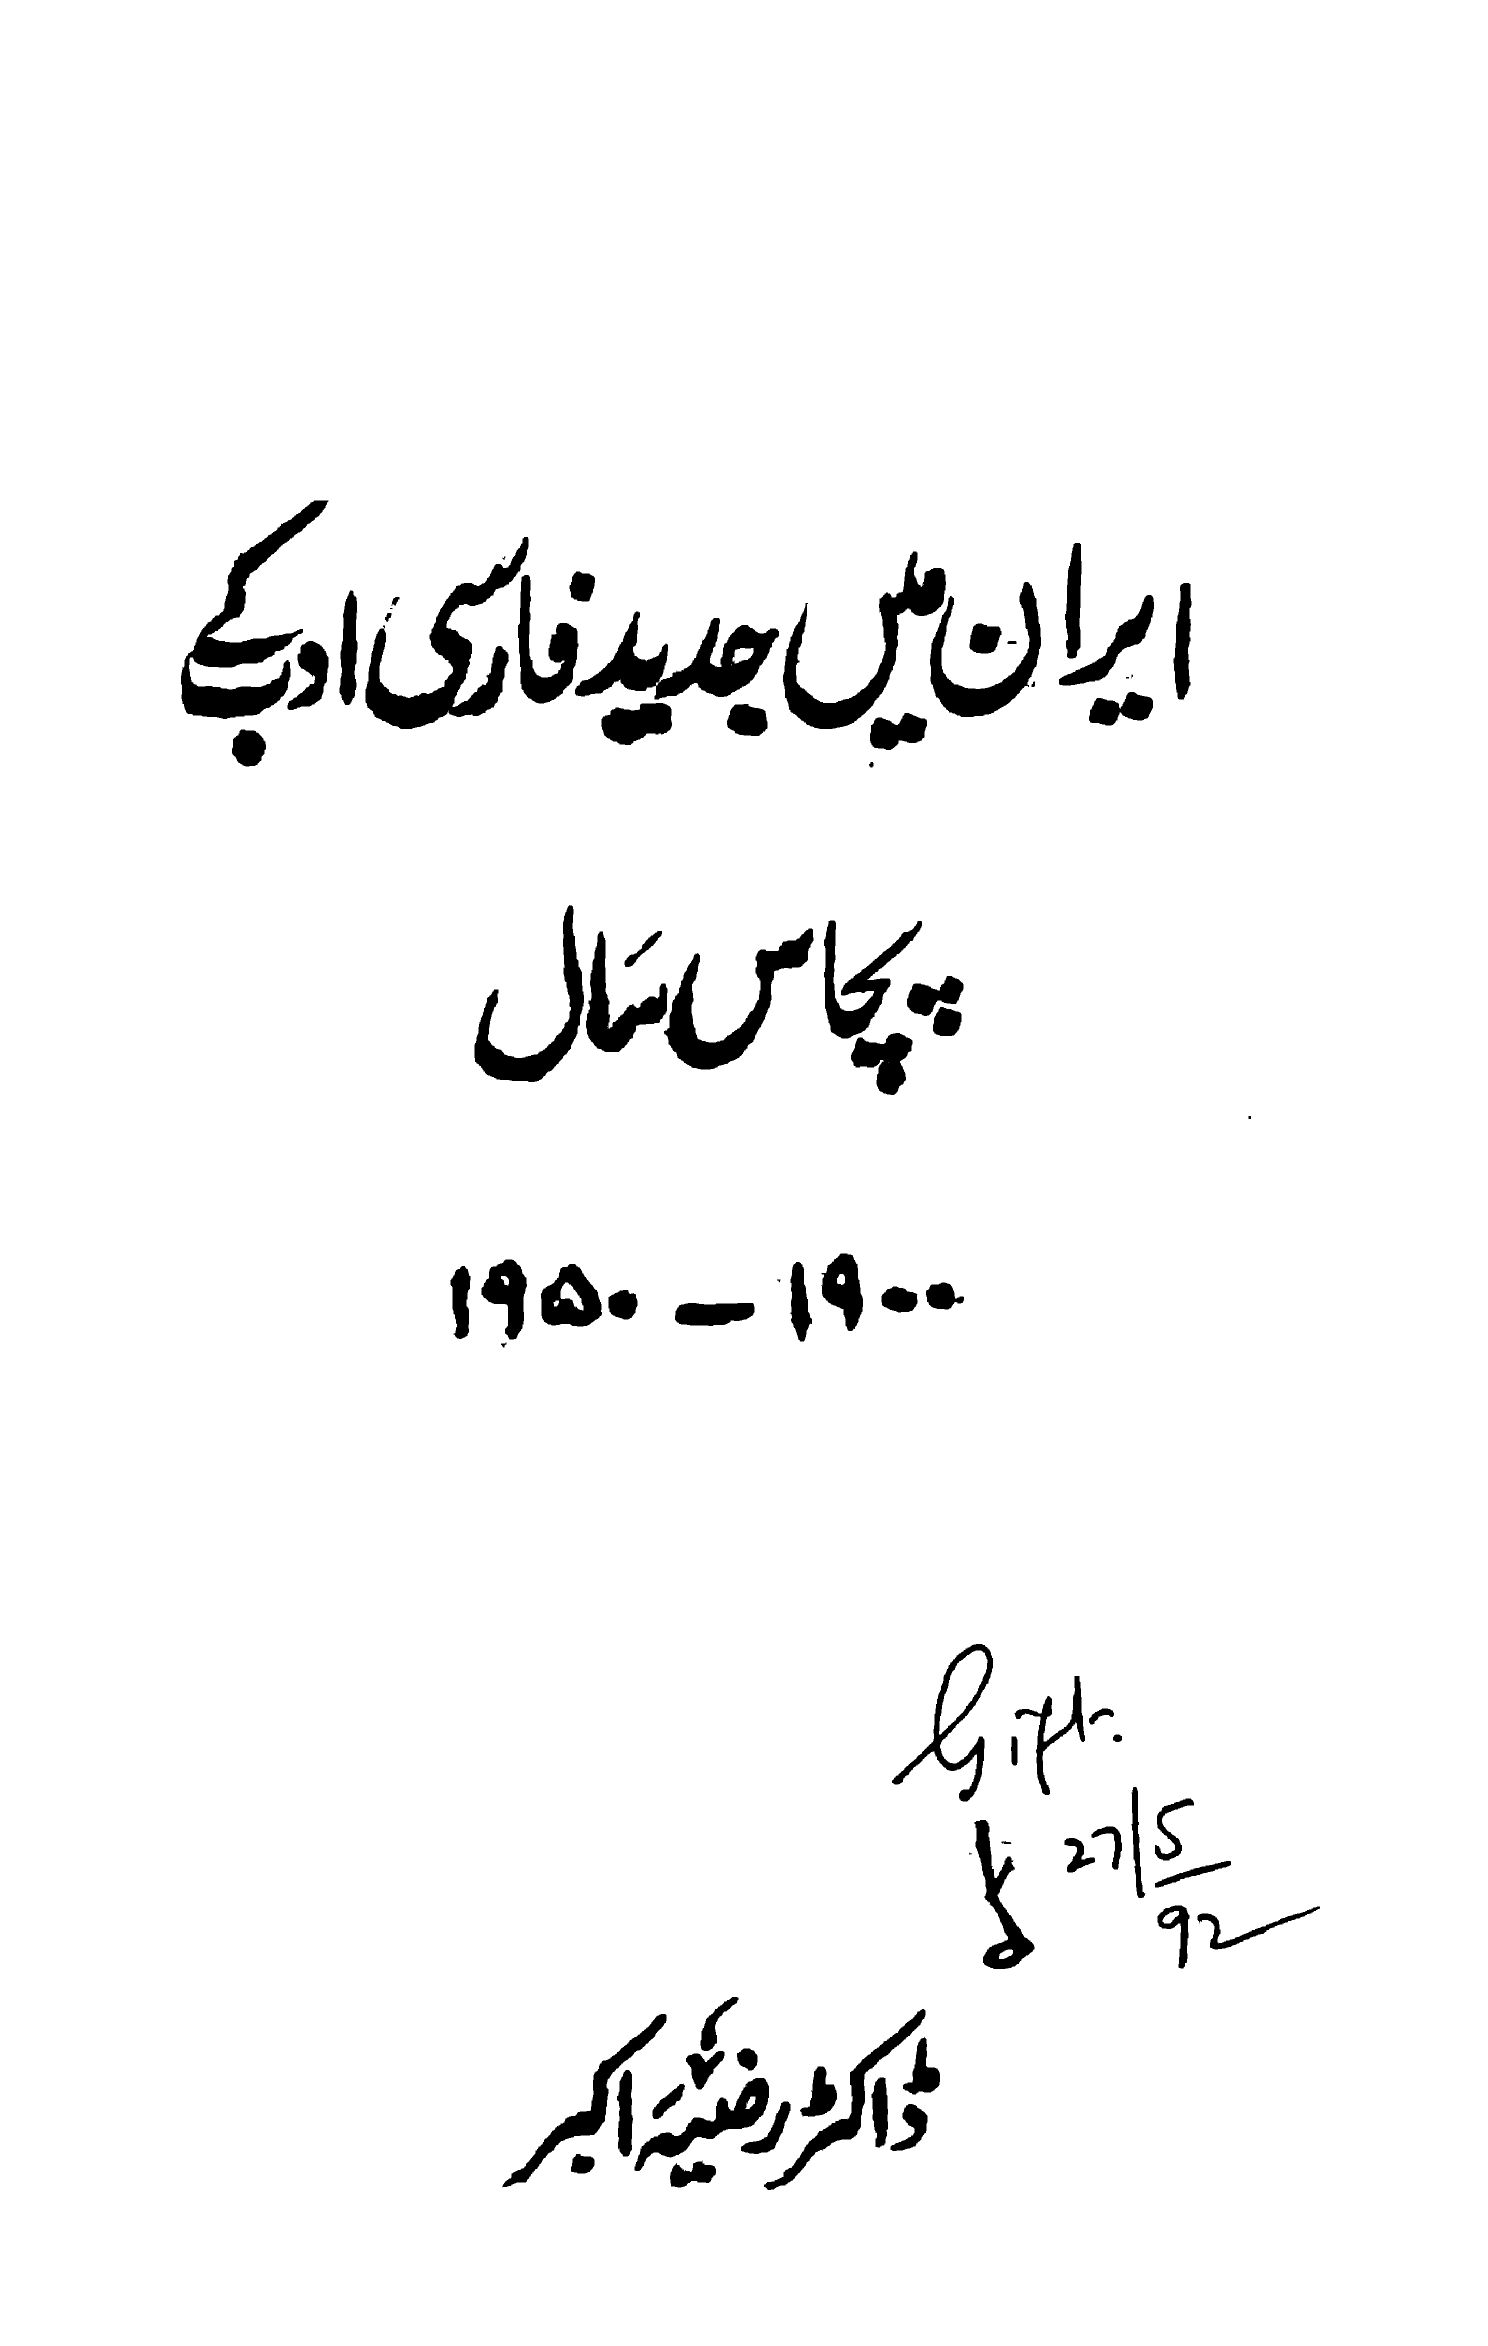 ایران میں جدید فارسی ادب کے
پچاس سال
۱۹۵۰ – ۱۹۰۰
Gift.
27/5
92
ڈاکٹر رضیّہ اکبر